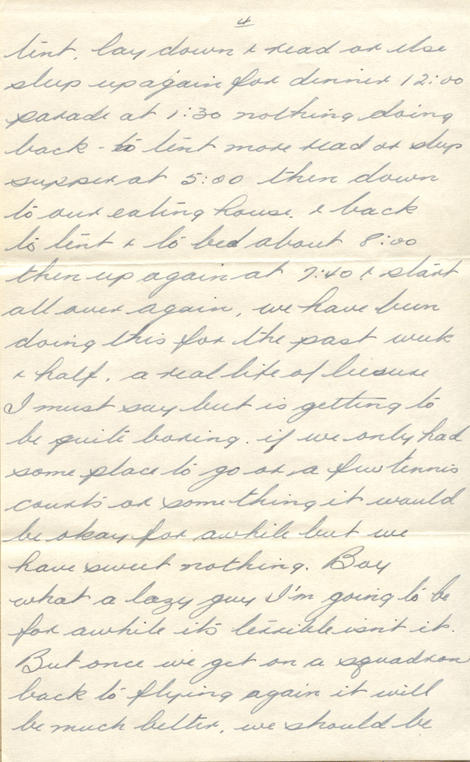 4
tent, lay down & read or else
sleep up again for dinner 12:00
parade at 1:30 nothing doing
back - to tent more read or sleep
supper at 5:00 then down
to our eating house, & back
to tent & to bed about 8:00
then up again at 7:40 & start
all over again, we have been
doing this for the past week
& half, a real life of liesure
I must say but is getting to
be quite boring. if we only had
some place to go or a few tennis
courts or something it would
be okay for awhile but we
have sweet nothing. Boy
what a lazy guy I'm going to be
for awhile its terrible isnt it.
But once we get on a squadron
back to flying again it will
be much better, we should be